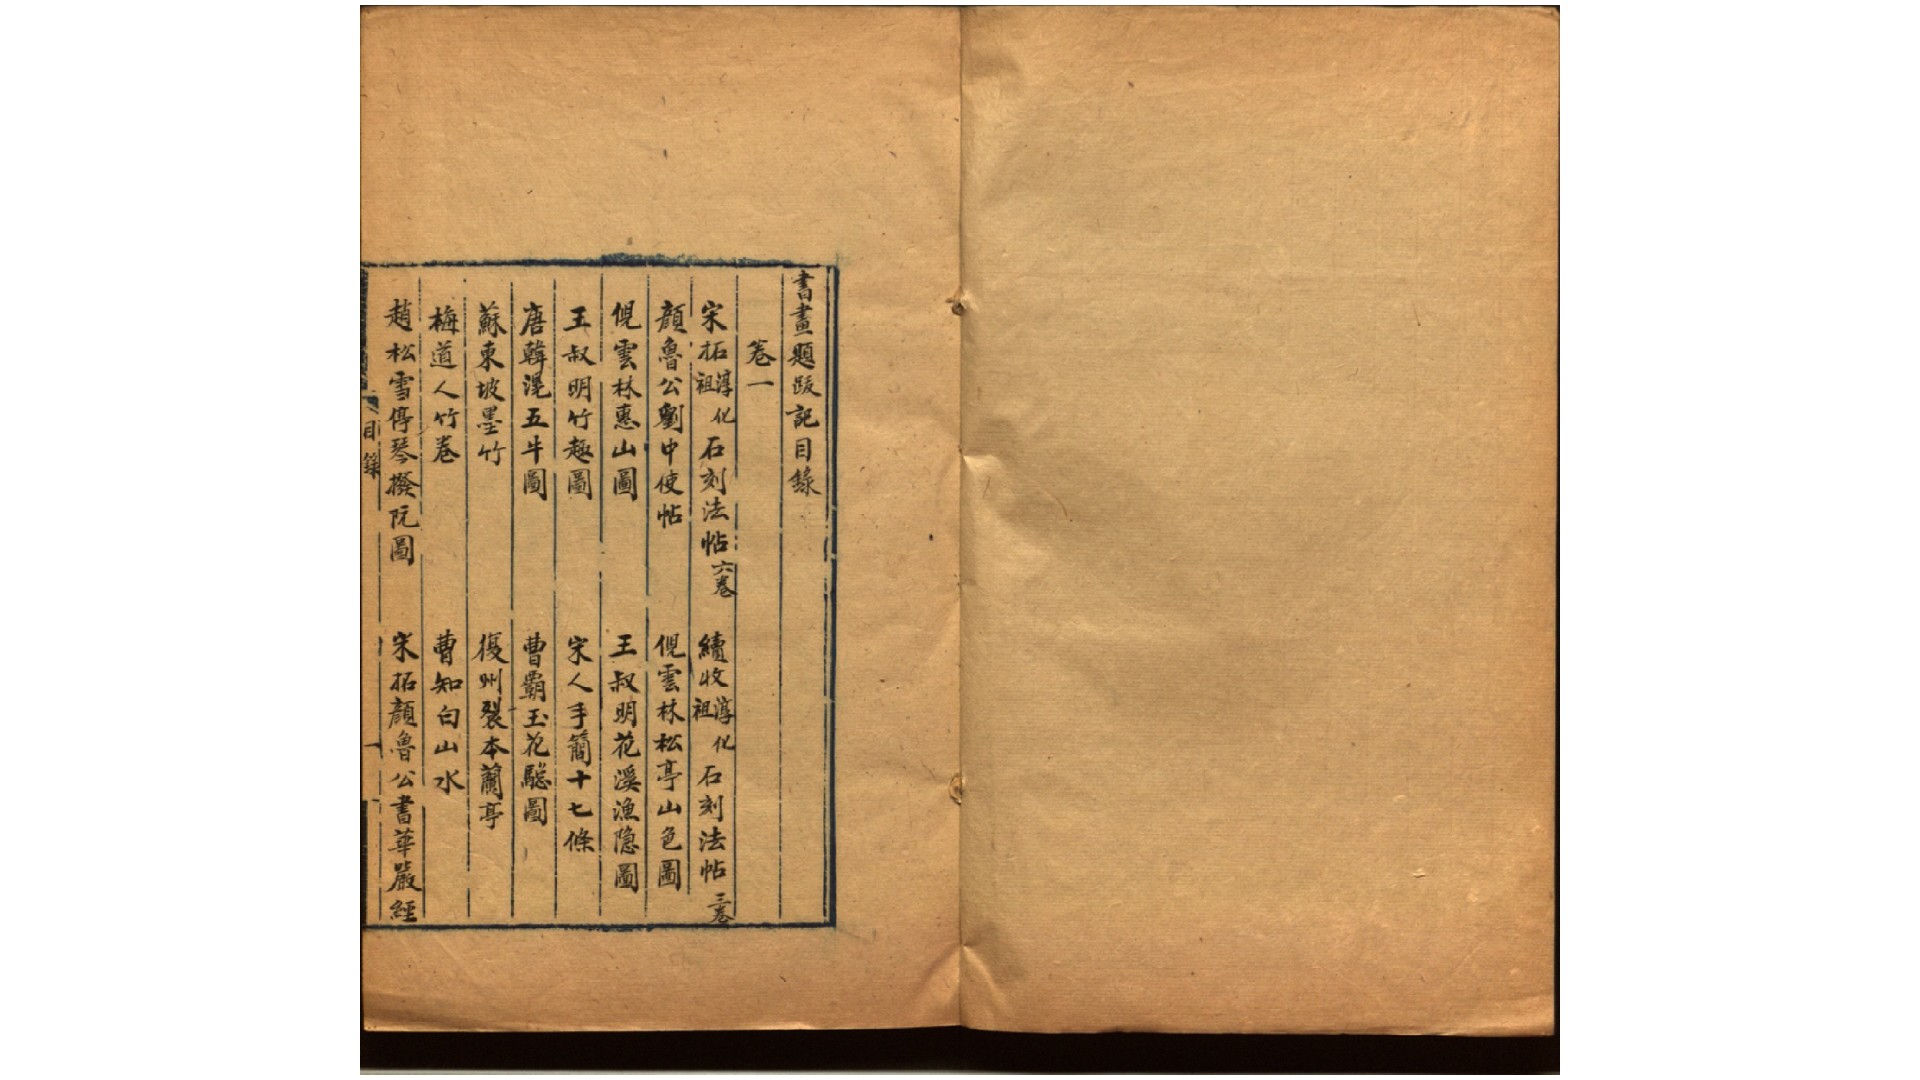 書畫題跋記目錄
卷一
宋拓淳化祖石刻法帖六卷 續收淳化祖石刻法帖三卷
顏魯公劉中使帖 倪雲林松亭山色圖
倪雲林惠山圖 王叔明花溪漁隐圖
王叔明竹趣圖 宋人手簡十七條
唐韓滉五牛圖 曹霸玉花驄圖
蘇東坡墨竹 復州裂本蘭亭
梅道人竹卷 曹知白山水
趙松雪停琴撥阮圖 宋拓顏魯公書華嚴經
目錄
一